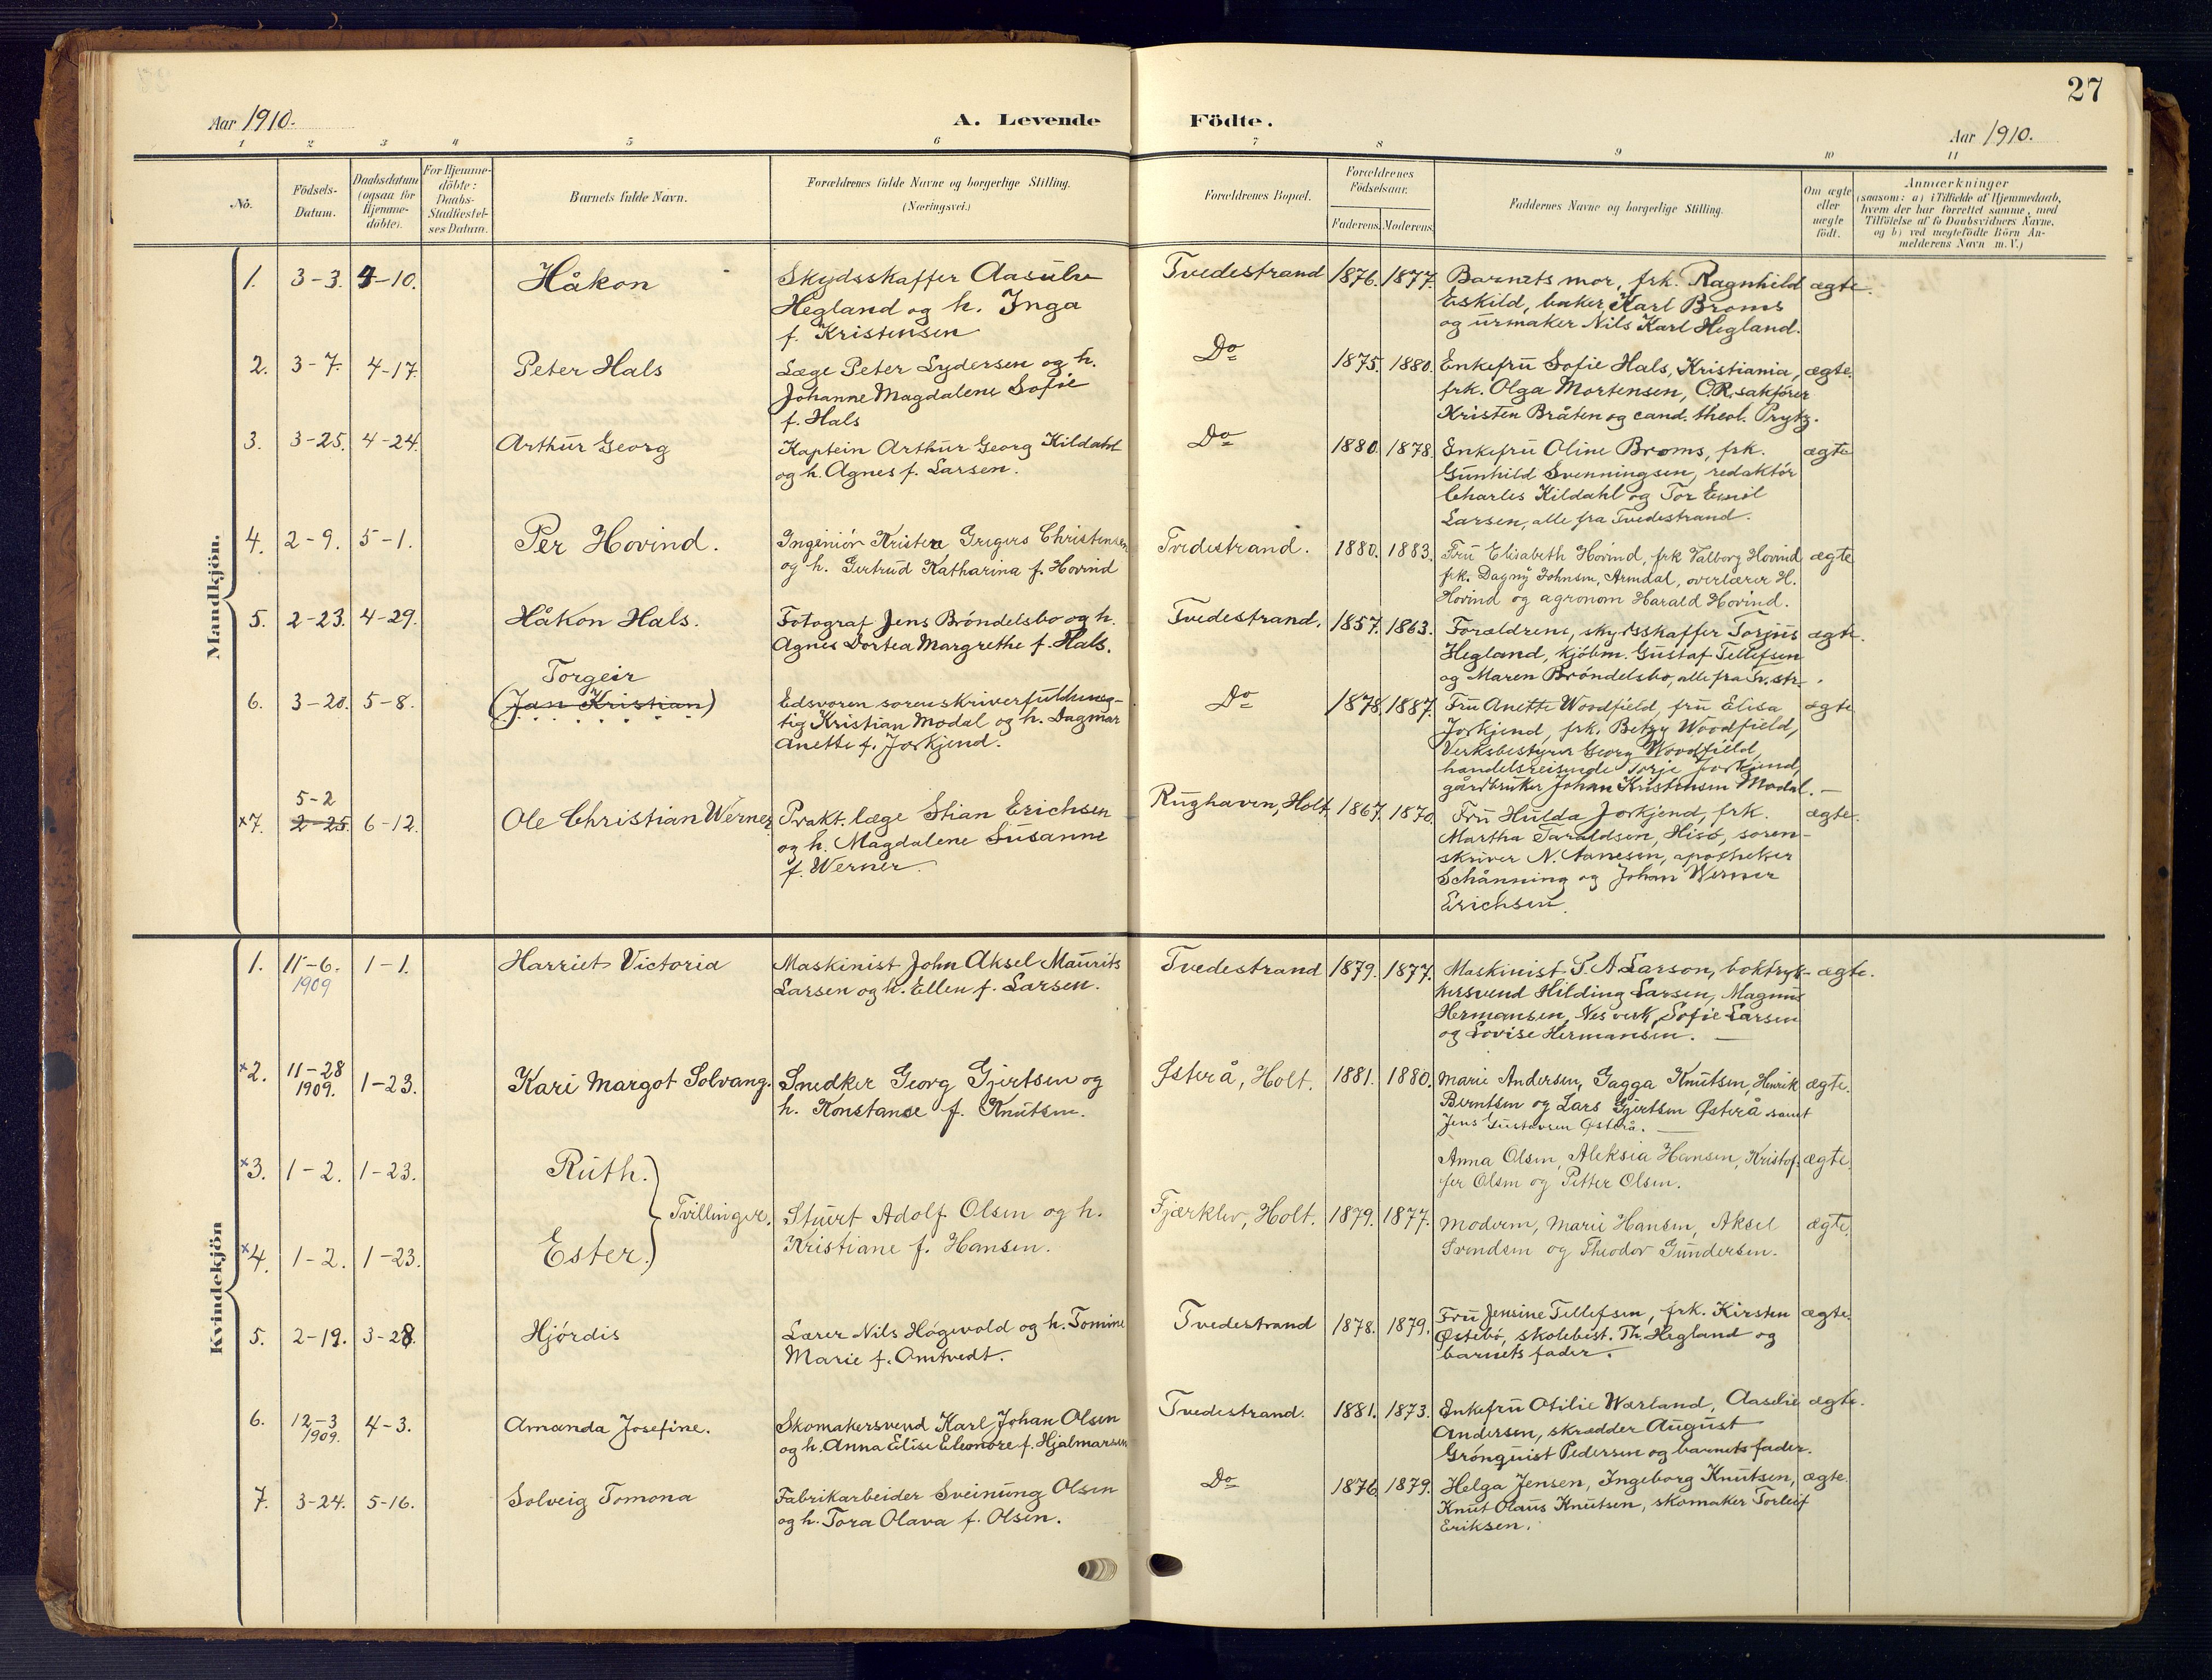 27
Aar 1910.
A. Levende Födte.
Aar 1910.
1 2 3 4 5 6 7 8 9 10 11
No.
Födsels-Datum.
Daabsdatum (ogsaa for Hjemme-döbte).
For Hjemme-döbte: Daabs-Stadfæstel-ses Datum.
Barnets fulde Navn.
Forældrenes fulde Navne og borgerlige Stilling.
(Næringsvei.)
Forældrenes Bopæl.
Forældrenes Födselsaar.
Faderens. Moderens.
Faddernes Navne og borgerlige Stilling.
Om ægte eller uægte födt.
Anmærkninger
(saasom: a) i Tilfælde af Hjemmedaab,
hvem der har forrettet samme, med
Tilföielse af to Daabsvidners Navne,
og b) ved uegtefödte Börn An-
melderens Navn m. V.)
Mandkjön.
1. 3-3. 4-10. Håkon
Skydsskaffer Aasulv
Hegland og h. Inga
f. Kristensen
Tvedestrand 1876. 1877.
Barnets mor, frk. Ragnhild
Eskild, baker Karl Broms
og urmaker Nils Karl Hegland.
ægte.
2. 3-7. 4-17. Peter Hals
Læge Peter Lydersen og h.
Johanne Magdalene Sofie
f. Hals
Do 1875. 1880.
Enkefru Sofie Hals, Kristiania,
frk. Olga Mortensen, O.R.sakfører
Kristen Bråten og cand. theol. Prytz.
ægte.
3. 3-25. 4-24. Arthur Georg
Kaptein Arthur Georg Kildahl
og h. Agnes f. Larsen.
Do 1880. 1878.
Enkefru Oline Broms, frk.
Gunhild Svenningsen, redaktør
Charles Kildahl og Tor Emil
Larsen, alle fra Tvedestrand.
ægte
4. 2-9. 5-1. Per Hovind.
Ingeniør Kristen Gregers Christensen
og h. Gertrud Katharina f. Hovind
Tvedestrand. 1880. 1883.
Fru Elisabeth Hovind, frk Valborg Hovind
frk. Dagny Johnsen, Arendal, overlærer H.
Hovind og agronom Harald Hovind.
ægte
5. 2-23. 4-29. Håkon Hals.
Fotograf Jens Brøndelsbo og h.
Agnes Dortea Margrethe f. Hals.
Tvedestrand. 1857. 1863.
Forældrene, skydsskaffer Torjus
Hegland, kjøbm. Gustaf Tellefsen
og Maren Brøndelsbo, alle fra Tv.str.
ægte.
6. 3-20. 5-8. Torgeir
(Jan Kristian)
Edsvoren sorenskriverfuldmeg-
tig Kristian Modal og h. Dagmar
Anette f. Jorkjend.
Do 1878. 1887.
Fru Anette Woodfield, fru Elisa
Jorkjend, frk. Betzy Woodfield,
Verksbestyrer Georg Woodfield,
handelsreisende Torje Jorkjend,
gårdbruker Johan Kristensen Modal.
ægte
x7. 5-2
2-25 6-12. Ole Christian Werner
Prakt. læge Stian Erichsen
og h. Magdalene Susanne
f. Werner.
Rughaven, Holt. 1867. 1870.
Fru Hulda Jorkjend, frk.
Martha Taraldsen, Hisø, soren-
skriver N. Aanesen, apotheker
Schånning og Johan Werner
Erichsen.
ægte.
Kvindekjön
1. 11-6. 1909 1-1. Harriet Victoria
Maskinist John Aksel Maurits
Larsen og h. Ellen f. Larsen.
Tvedestrand 1879. 1877.
Maskinist S. A Larson, boktryk-
kersvend Hilding Larsen, Magnus
Hermansen, Nes verk, Sofie Larsen
og Lovise Hermansen.
ægte.
x2. 11-28 1909. 1-23. Kari Margot Solvang.
Snedker Georg Gjertsen og
h. Konstanse f. Knutsen.
Østerå, Holt. 1881. 1880.
Marie Andersen, Gagga Knutsen, Henrik
Berntsen og Lars Gjertsen Østerå samt
Jens Gustavsen Østerå.
ægte.
x3. 1-2. 1-23. Ruth.
Anna Olsen, Aleksia Hansen, Kristof-
fer Olsen og Petter Olsen.
ægte.
Tvillinger.
Stuert Adolf Olsen og h.
Kristiane f. Hansen.
Fjærklev, Holt. 1879. 1877.
x4. 1-2. 1-23. Ester.
Moderen, Marie Hansen, Aksel
Svendsen og Theodor Gundersen.
ægte.
5. 2-19. 3-28. Hjørdis
Lærer Nils Høgevold og h. Tomine
Marie f. Omtvedt.
Tvedestrand 1878. 1879.
Fru Jensine Tellefsen, frk. Kirsten
Østebø, skolebest. Th. Hegland og
barnets fader.
ægte.
6. 12-3 1909. 4-3. Amanda Josefine.
Skomakersvend Karl Johan Olsen
og h. Anna Elise Eleonore f. Hjalmarsen
Tvedestrand. 1881. 1873.
Enkefru Otilie Warland, Aaselie
Andersen, skrædder August
Grönquist Pedersen og barnets fader.
ægte.
7. 3-24. 5-16. Solveig Tomona
Fabrikarbeider Sveinung Olsen
og h. Tora Olava f. Olsen.
Do 1876. 1879.
Helga Jensen, Ingeborg Knutsen,
Knut Olaus Knutsen, skomaker Torleif
Eriksen.
ægte.